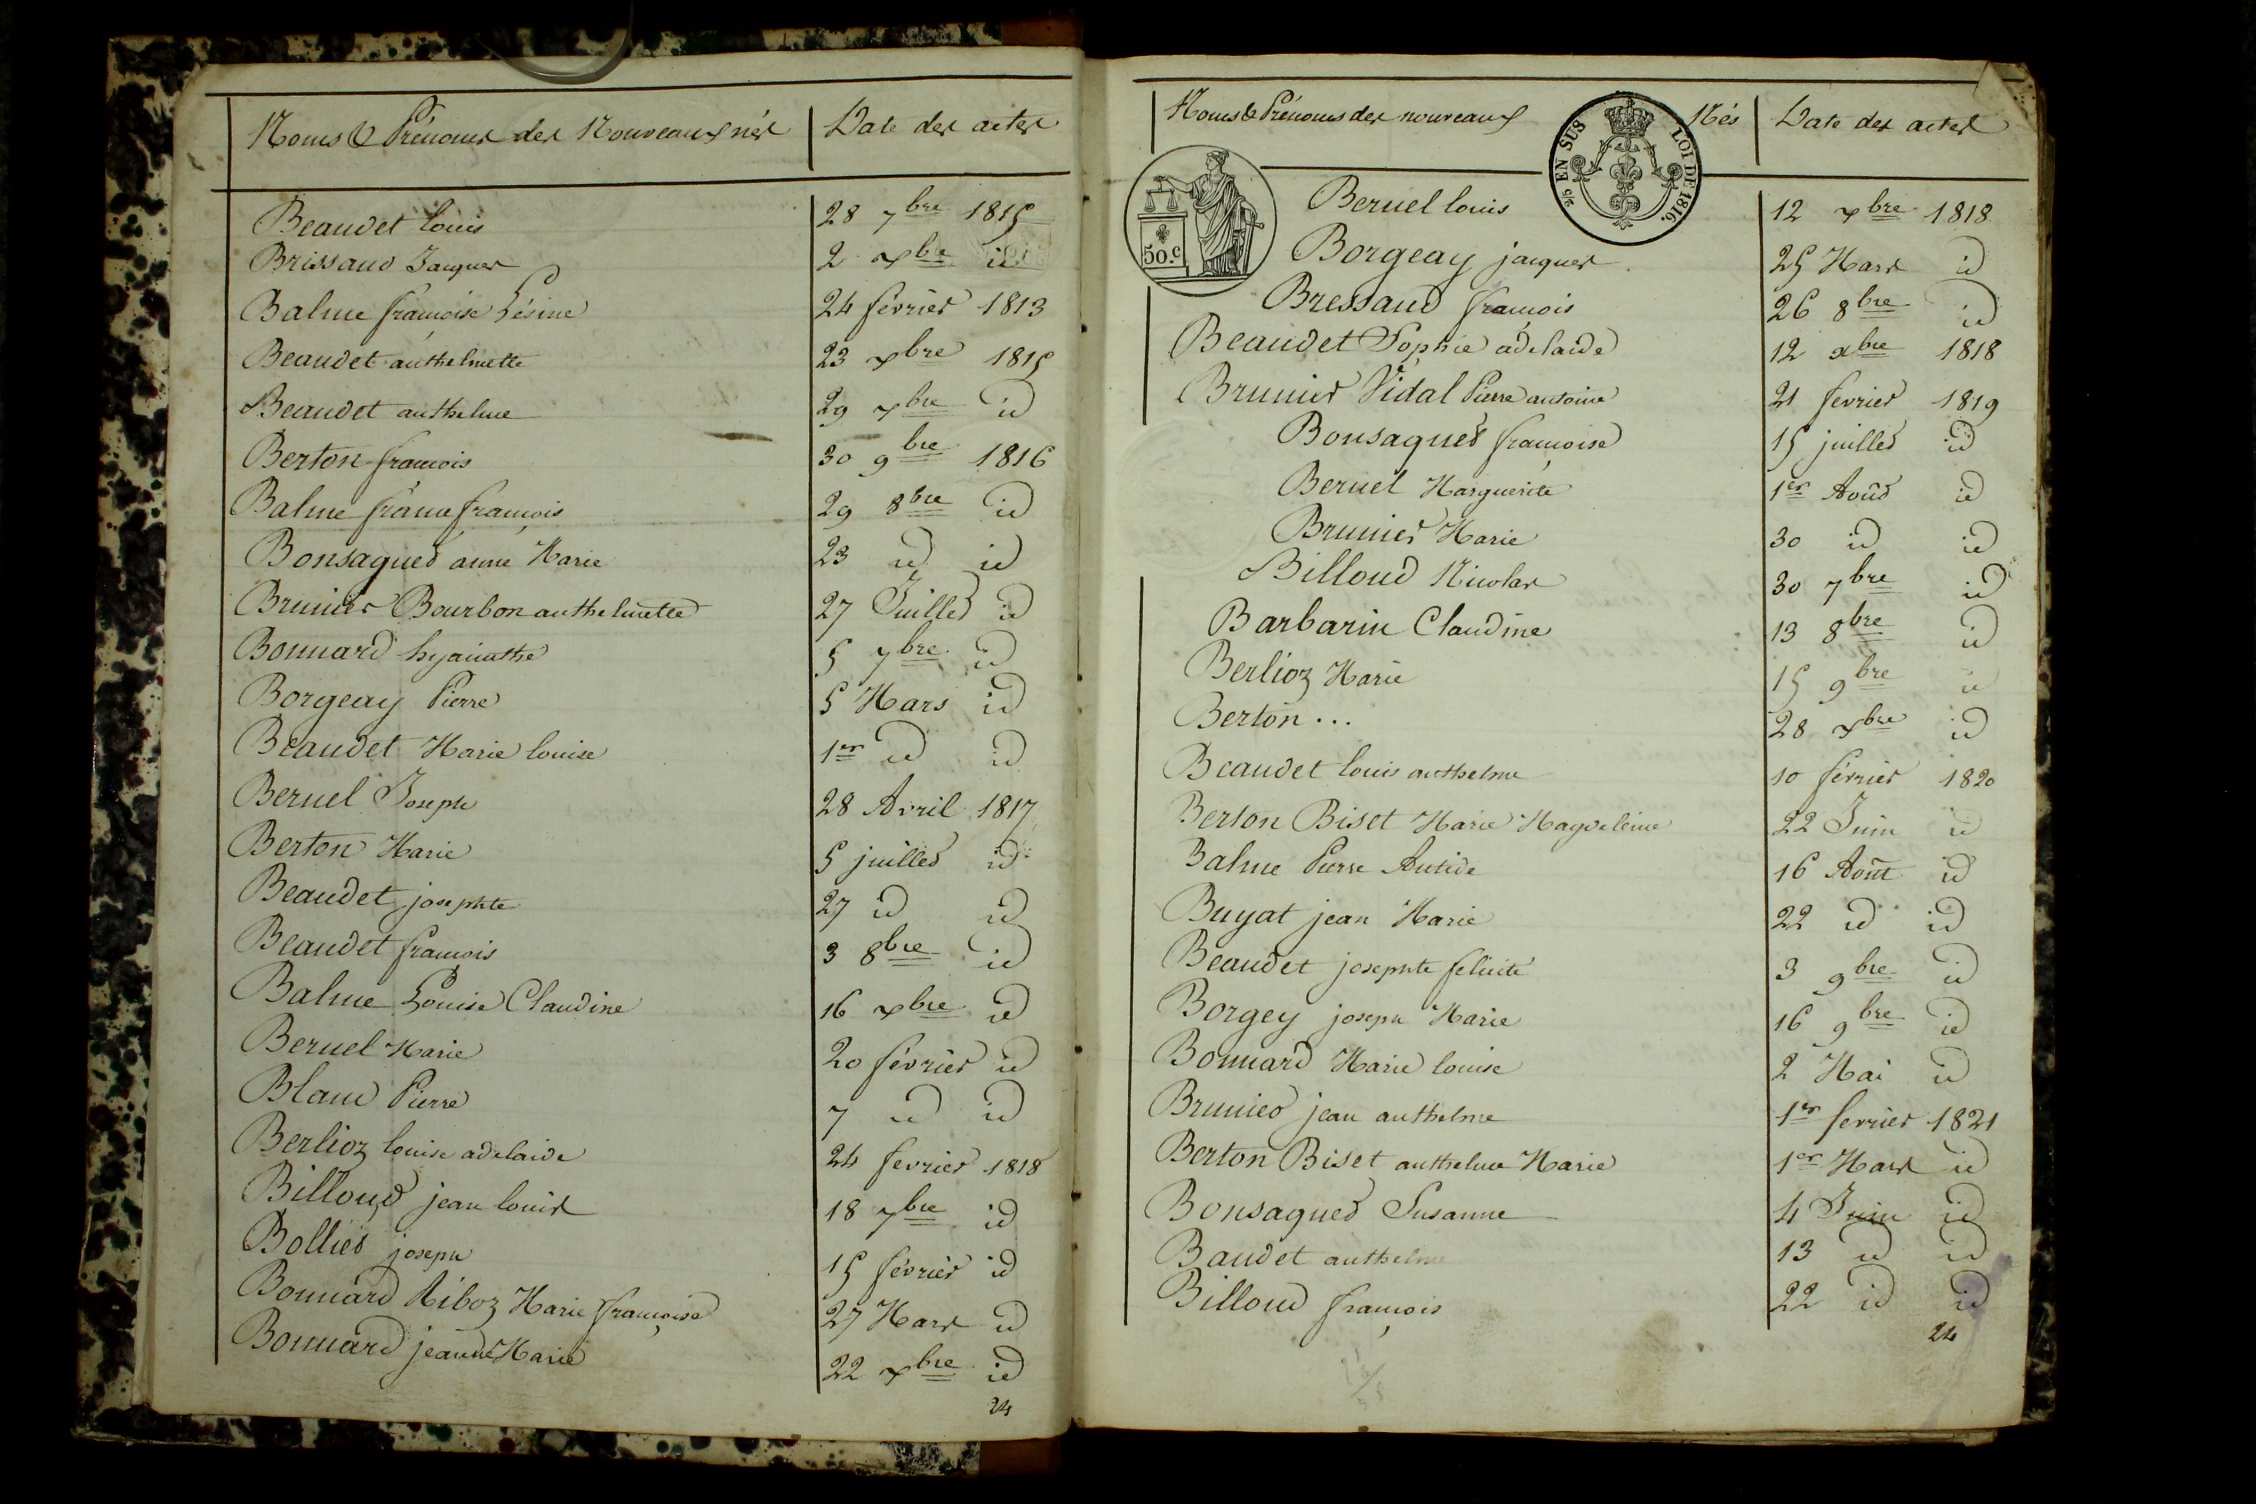 Noms & Prénoms des Nouveaux nés | Date des actes
Beaudet louis 28 7bre 1815
Brissaud Jacques 2 xbre id
Balme françoise Lésine 24 février 1813
Beaudet anthelmette 23 xbre 1815
Beaudet anthelme 29 xbre id
Berton françois 30 9bre 1816
Balme françois 29 8bre id
Bonsaqued anne Marie 23 id id
Brunier Bourbon anthelmette 27 Juillet id
Bonnard hyacinthe 5 7bre id
Borgeay Pierre 5 Mars id
Beaudet Marie louise 1er id id
Beruel Joseph 28 Avril 1817
Berton Marie 5 juillet id
Beaudet josephte 27 id id
Beaudet françois 3 8bre id
Balme Louise Claudine 16 xbre id
Beruel Marie 20 février id
Blanc Pierre 7 id id
Berlioz louise adelaide 24 fevrier 1818
Billoud jean louis 18 7bre id
Bollied joseph 15 février id
Bonnard Riboz Marie françoise 27 Mars id
Bonnard jeanne Marie 22 xbre id
24
Noms & Prénoms des nouveaux Nés | Date des actes
EN SUS LOI DE 1816.
50.c
Beruel louis 12 xbre 1818
Borgeay jacques 25 Mars id
Bressaud françois 26 8bre id
Beaudet Sophie adelaide 12 xbre 1818
Brunier Vidal Pierre antoine 21 fevrier 1819
Bonsaqued françoise 15 juillet id
Beruel Marguerite 1er Août id
Brunier Marie 30 id id
Billoud Nicolas 30 7bre id
Barbarin Claudine 13 8bre id
Berlioz Marie 15 9bre id
Berton ... 28 xbre id
Beaudet louis anthelme 10 février 1820
Berton Biset Marie Magdeleine 22 Juin id
Balme Pierre Antide 16 Août id
Buyat jean Marie 22 id id
Beaudet josephte felicité 3 9bre id
Borgey joseph Marie 16 9bre id
Bonnard Marie louise 2 Mai id
Brunier jean anthelme 1er fevrier 1821
Berton Biset anthelme Marie 1er Mars id
Bonsaqued Susanne 4 Juin id
Baudet anthelme 13 id id
Billoud françois 22 id id
24